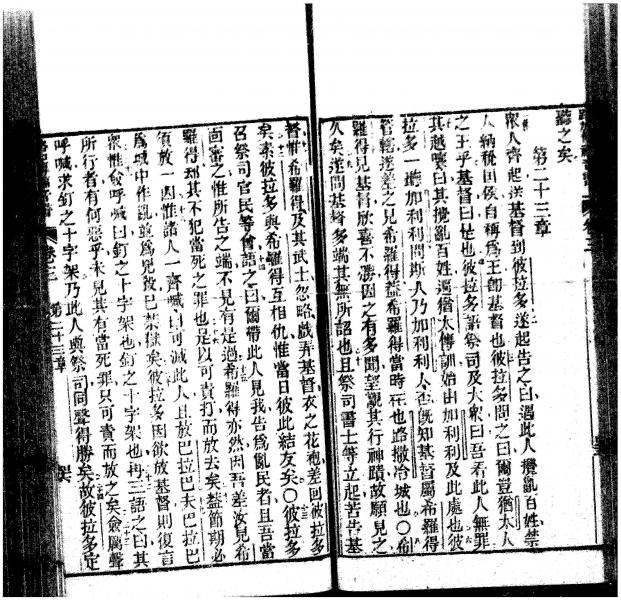 聽之矣
第二十三章
衆人齊起送基督到彼拉多遂起告之曰遇此人攪亂百姓禁
人納稅囬侯自稱爲王卽基督也彼拉多問之曰爾豈猶太人
之王乎基督曰是也彼拉多語祭司及大衆曰吾看此人無罪
其越嚷曰其攪亂百姓遍猶太傳訓始由加利利及此處也彼
拉多一聽加利利問斯人乃加利利人否旣知基督屬希羅得
管轄遂差之見希羅得蓋希羅得當時在也路撒冷城也〇希
羅得見基督欣喜不勝因之有多聞望觀其行神蹟故願見之
久矣遂問基督多端其無所詔也且祭司書士等立起苦告基
督惟希羅得及其武士忽略戲弄基督衣之花袍差回彼拉多
矣素彼拉多與希羅得互相仇惟當日彼此結友矣〇彼拉多
召祭司官民等會語之曰爾帶此人見我告爲亂民者且吾當
面審之惟所告之端不見有是過希羅得亦然因吾差汝見希
羅得現其不犯當死之罪也是以可責打而放去矣蓋節期必
須放一囚惟諸人一齊喊曰可滅此人且放巴拉巴夫巴拉巴
爲城中作亂並爲兇殺已禁獄矣彼拉多因欲放基督則復言
衆惟僉呼喊曰釘之十字架也釘之十字架也再三語之曰其
所行者有何惡乎未見其有當死罪只可責而放之矣僉厲聲
呼喊求釘之十字架乃此人與祭司同聲得勝矣故彼拉多定
卷三 第二十三章